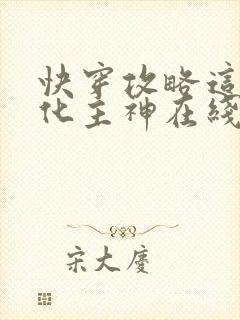 快穿攻略這
化主神在綫
宋大慶